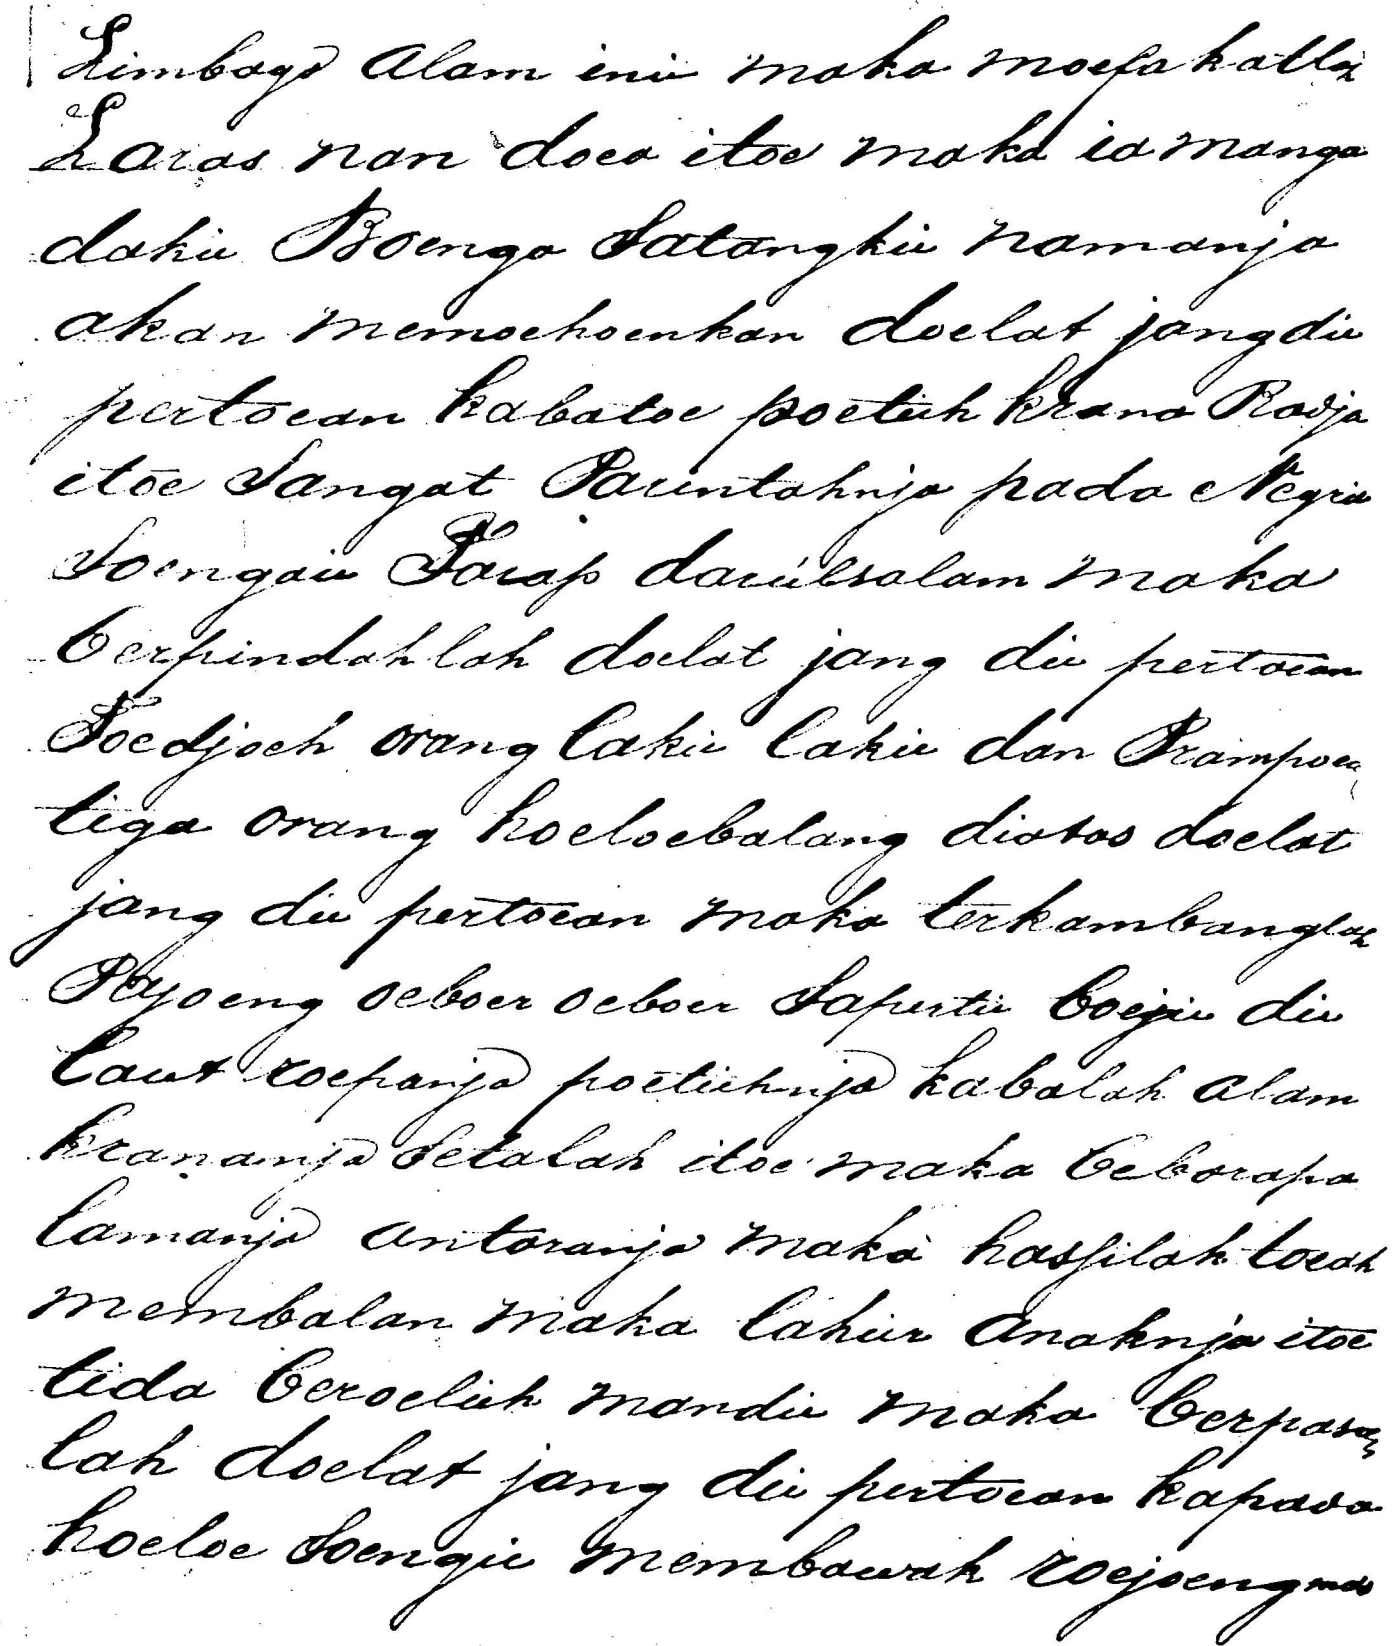 Limbago Alam ini maka moefakatlah
Laras nan doea itoe maka ia manga
daki Boenga Satangki namanja
akan memoehoenkan doelat jang di
pertoean kabatoe poetih krana Radja
itoe Sangat Parintahnja pada Negri
Soengai Tarap darúlsalam maka
berpindahlah doelat jang di pertoean
Toedjoeh orang laki laki dan Prampoean
tiga orang hoeloebalang diatas doelat
jang di pertoean maka terkambanglah
Payoeng oeboer oeboer Saperti boeji di
laut roepanja poetihnja kabalah alam
krananja Setalah itoe maka babarapa
lamanja antaranja maka hassilah toeah
membalan maka lahir Anaknja itoe
tida beroelih mandi maka berpasan
lah doelat jang di pertoean kapada
hoeloe Soengi membawah roejoeng